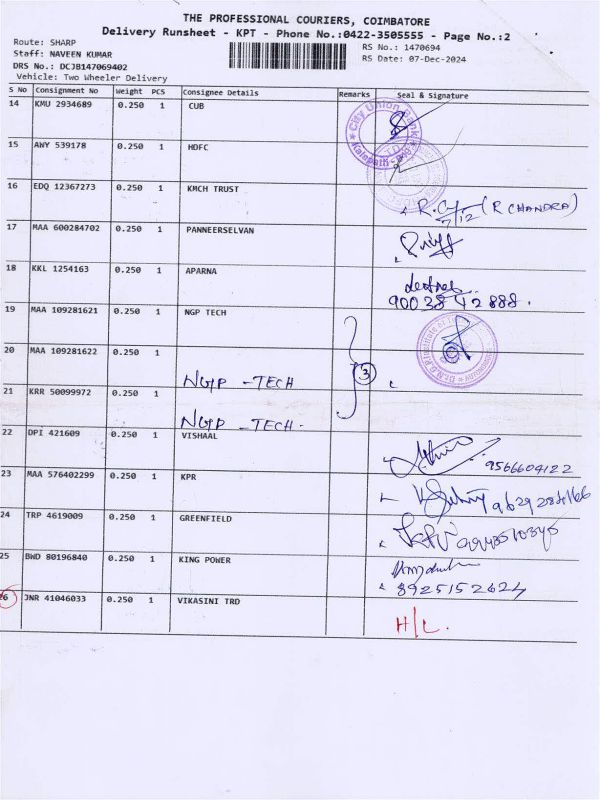 THE PROFESSIONAL COURIERS, COIMBATORE
Delivery Runsheet - KPT - Phone No.:0422-3505555 - Page No.:2
Route: SHARP
Staff: NAVEEN KUMAR
DRS No.: DCJB147069402
Vehicle: Two Wheeler Delivery
RS No.: 1470694
RS Date: 07-Dec-2024
S No Consignment No Weight PCS Consignee Details Remarks Seal & Signature
14 KMU 2934689 0.250 1 CUB
City Union Bank
15 AWY 539178 0.250 1 HDFC
16 EDQ 12367273 0.250 1 KMCH TRUST
7/12 (R CHANDRA)
17 MAA 600284702 0.250 1 PANNEERSELVAN
18 KKL 1254163 0.250 1 APARNA
9003842888.
19 MAA 109281621 0.250 1 NGP TECH
20 MAA 109281622 0.250 1
NGP -TECH
3
21 KRR 50099972 0.250 1
NGP -TECH.
22 DPI 421609 0.250 1 VISHAAL
9566604122
23 MAA 576402299 0.250 1 KPR
24 TRP 4619009 0.250 1 GREENFIELD
25 BWD 80196840 0.250 1 KING POWER
8925152624
26 JNR 41046033 0.250 1 VIKASINI TRD
H/L.